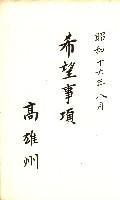 昭和十六年八月
希望事項
高雄州